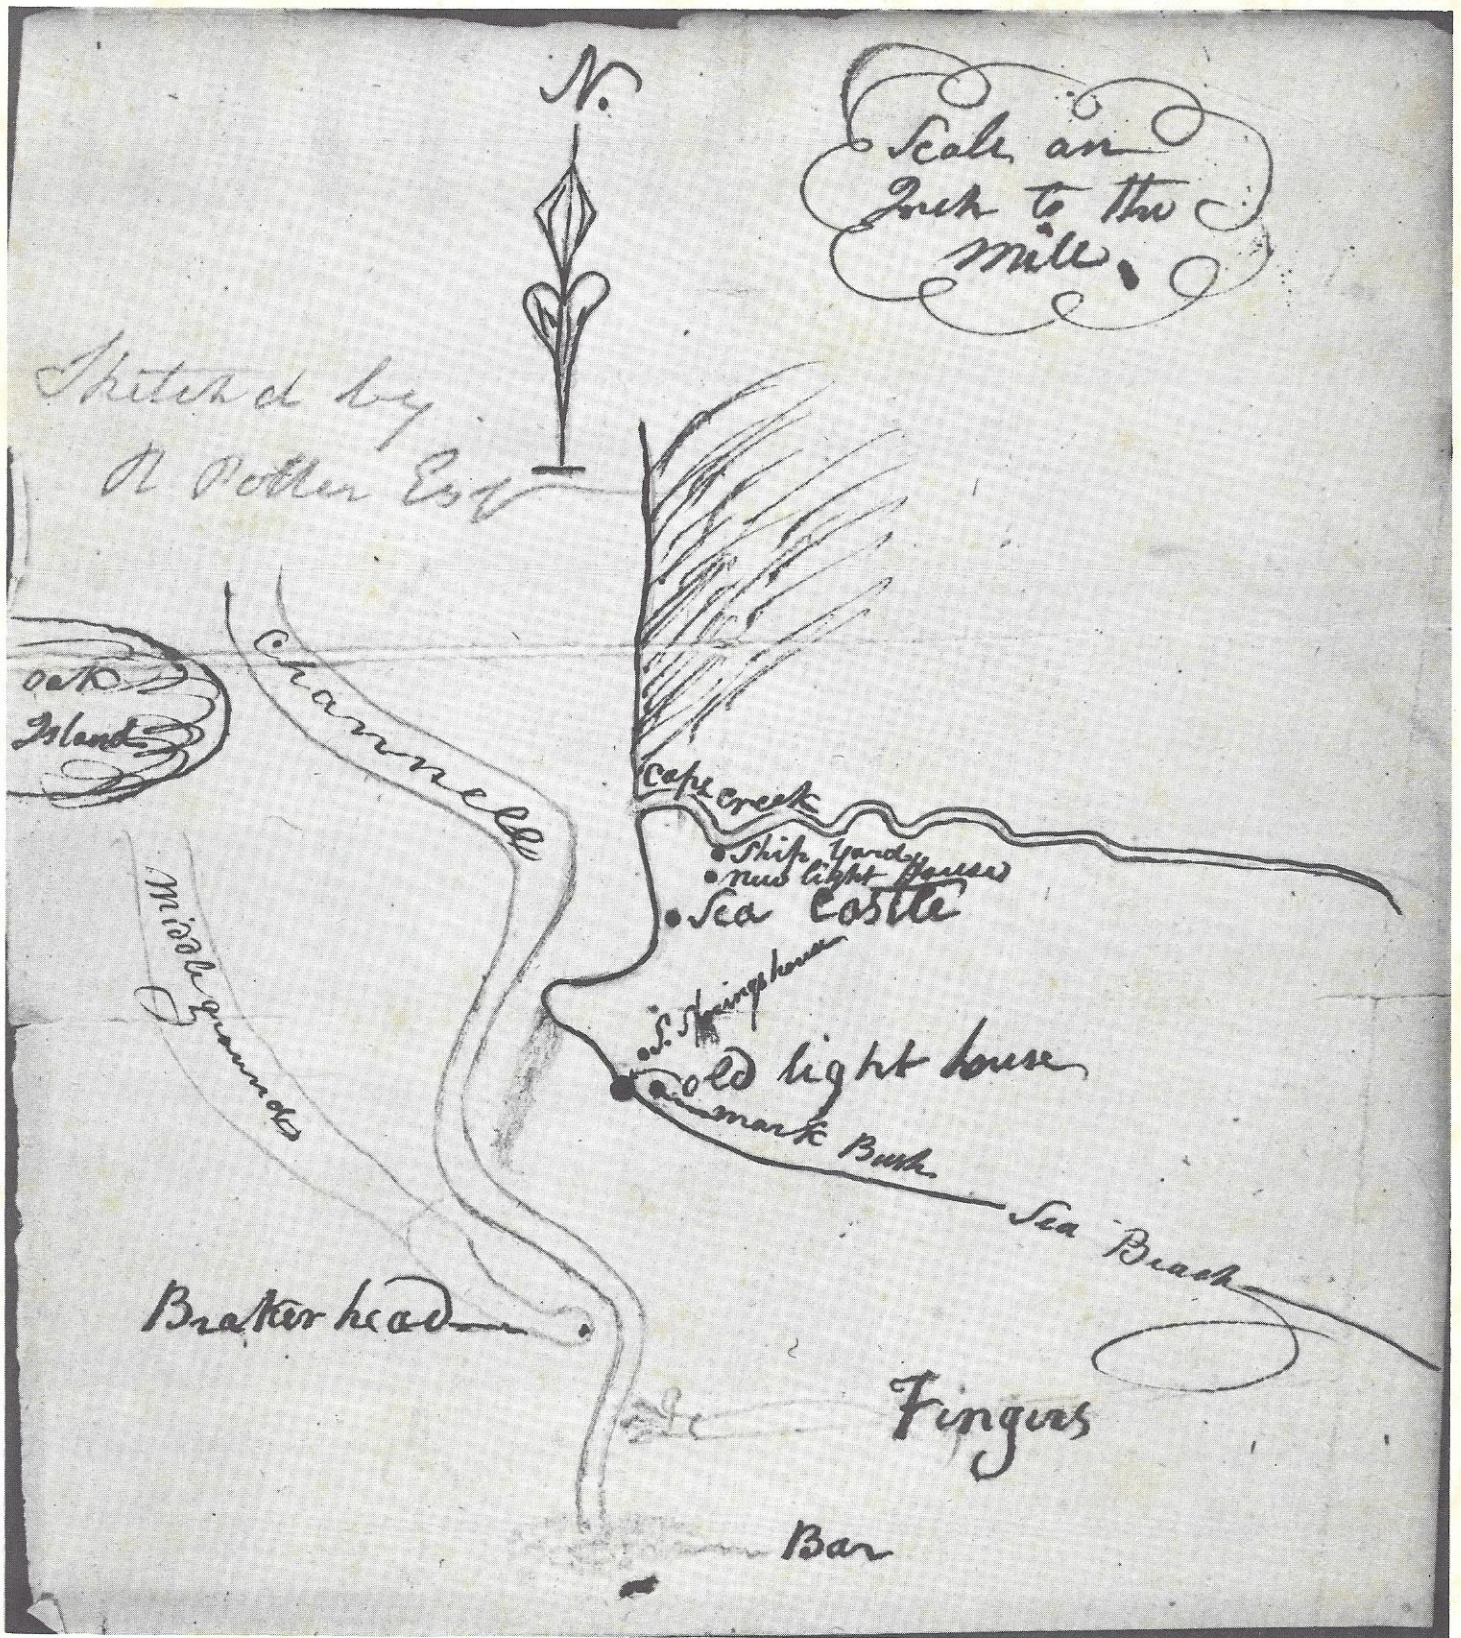 N.
Scale an
Inch to the
mile.
Sketchd by
R Potter Esqr
Channell
Oak
Island
Cape Creek
Ship Yard
New light House
Sea Castle
Middle grounds
S. Springs house
old light house
mark Bush
Sea Beach
Braker head
Fingers
Bar